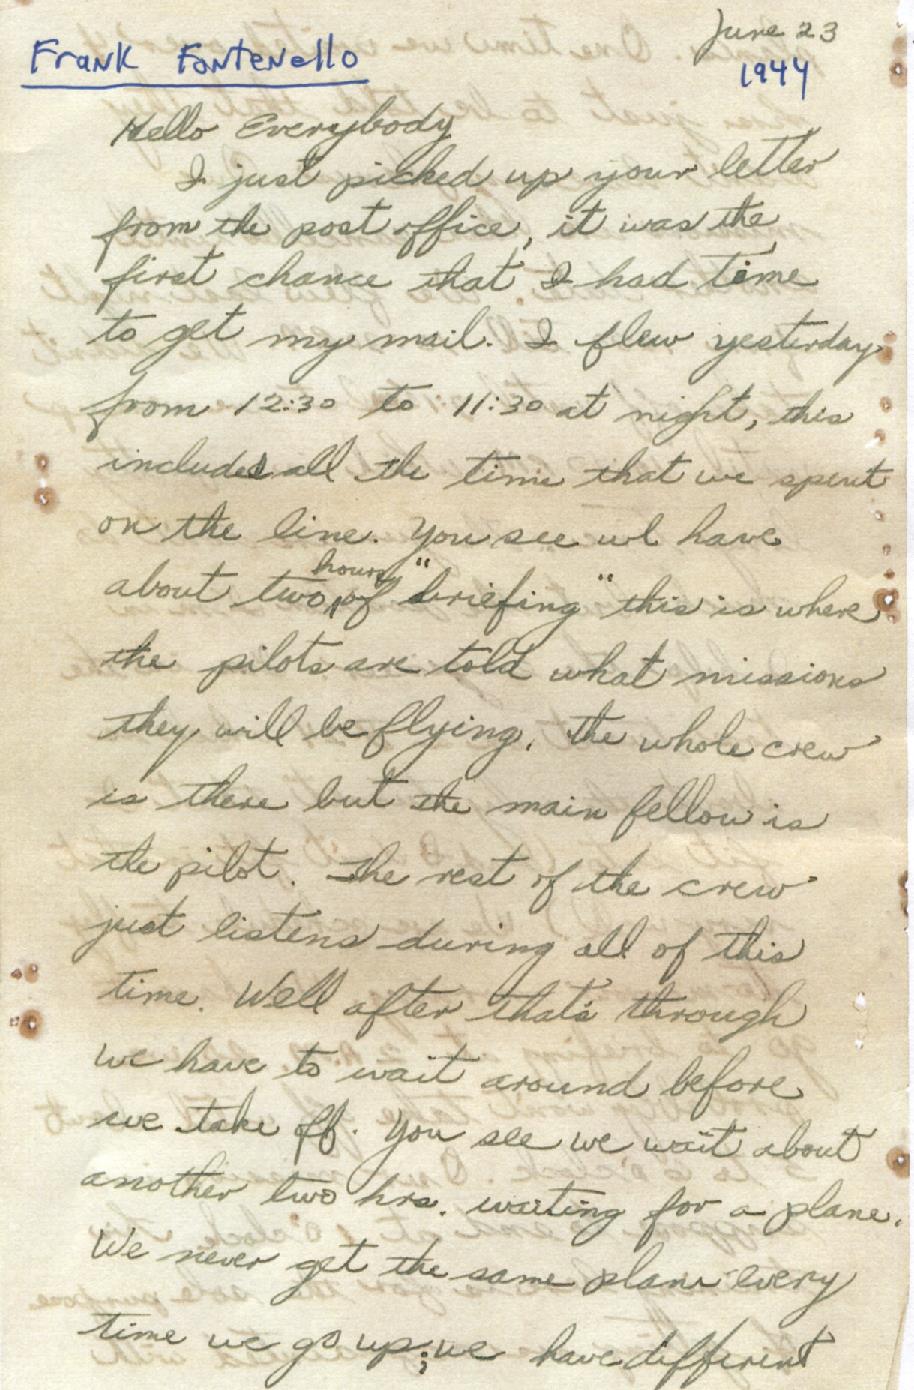 June 23
Frank Fontenello
1944
Hello Everybody
I just picked up your letter
from the post office, it was the
first chance that I had time
to get my mail. I flew yesterday
from 12:30 to 11:30 at night, this
included all the time that we spent
on the line. You see we have
about two hours of "briefing" this is where
the pilots are told what missions
they will be flying. The whole crew
is there but the main fellow is
the pilot. The rest of the crew
just listens during all of this
time. Well after that's through
we have to wait around before
we take off. You see we wait about
another two hrs. waiting for a plane.
We never get the same plane every
time we go up; we have different